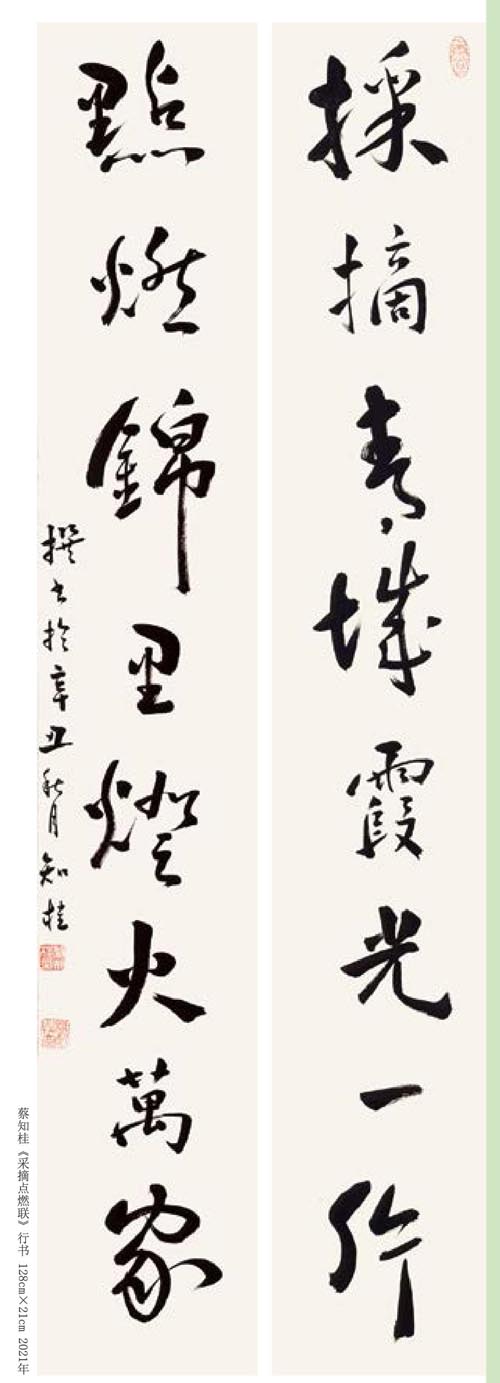 採摘青城霞光一片
點燃錦里燈火萬家
撰书於辛丑秋月知桂
蔡知桂《采摘点燃联》行书 128cm×21cm 2021年